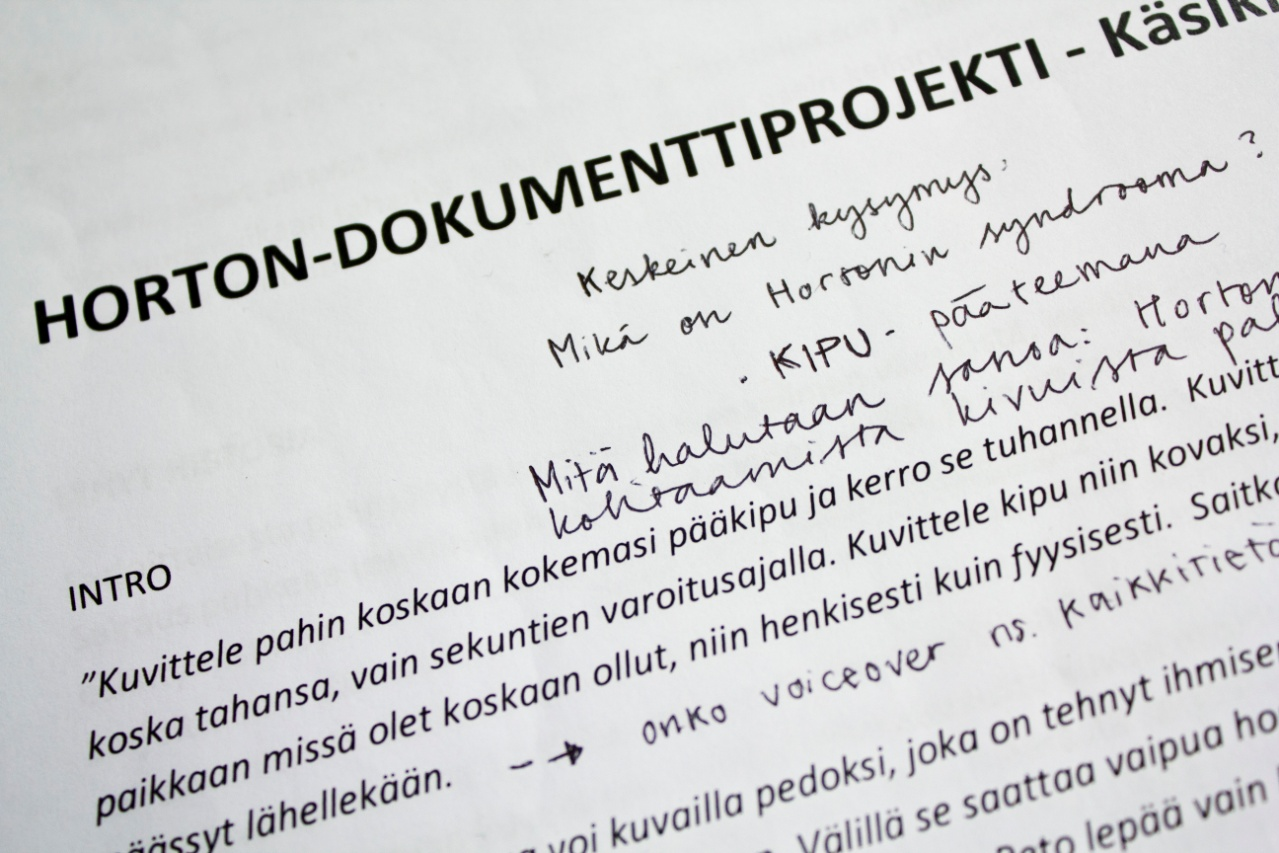 HORTON-DOKUMENTTIPROJEKTI - Käsiki
Keskeinen kysymys:
Mikä on Hortonin syndrooma?
. KIPU - pääteemana
Mitä halutaan sanoa: Horton
kohtaamista kivuista pa
INTRO
”Kuvittele pahin koskaan kokemasi pääkipu ja kerro se tuhannella. Kuvitt
koska tahansa, vain sekuntien varoitusajalla. Kuvittele kipu niin kovaksi,
paikkaan missä olet koskaan ollut, niin henkisesti kuin fyysisesti. Saitko
äässyt lähellekään. --> onko voiceover ns. kaikkitietä
voi kuvailla pedoksi, joka on tehnyt ihmise
Välillä se saattaa vaipua ho
Peto lepää vain